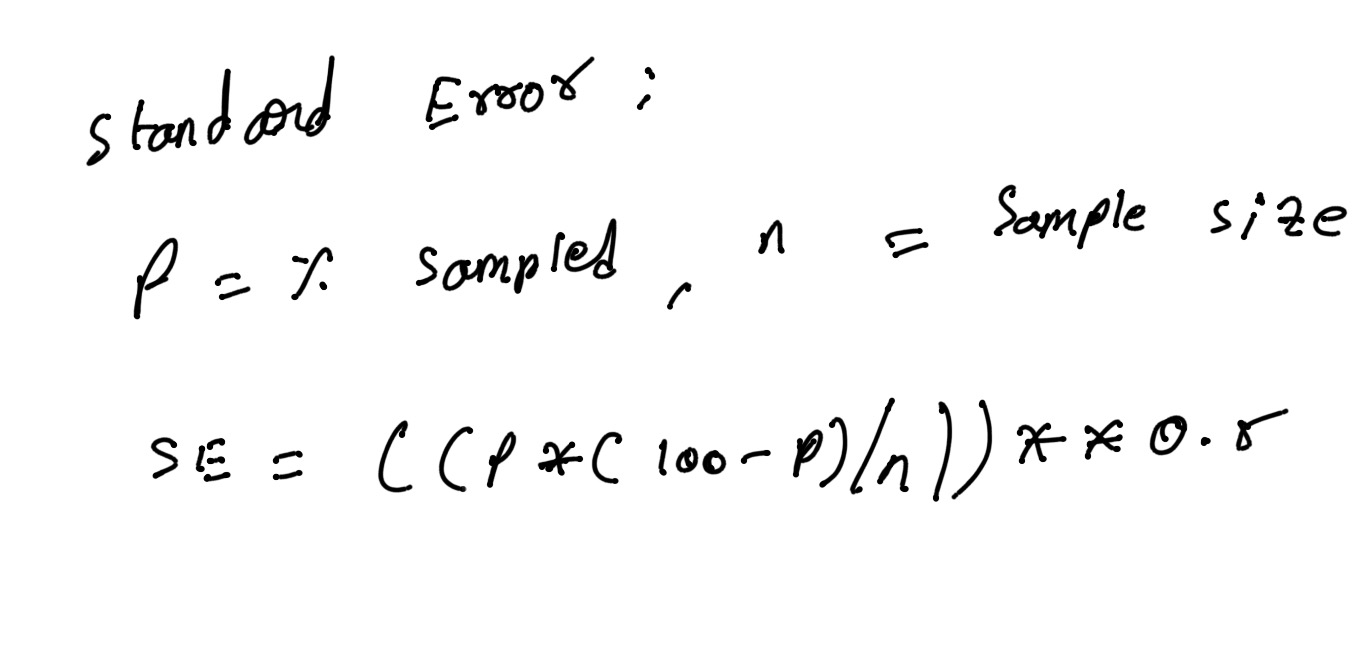 Standard Error :
P = % Sampled , n = Sample size
SE = ((P *( 100 - P)/n)) ** 0.5